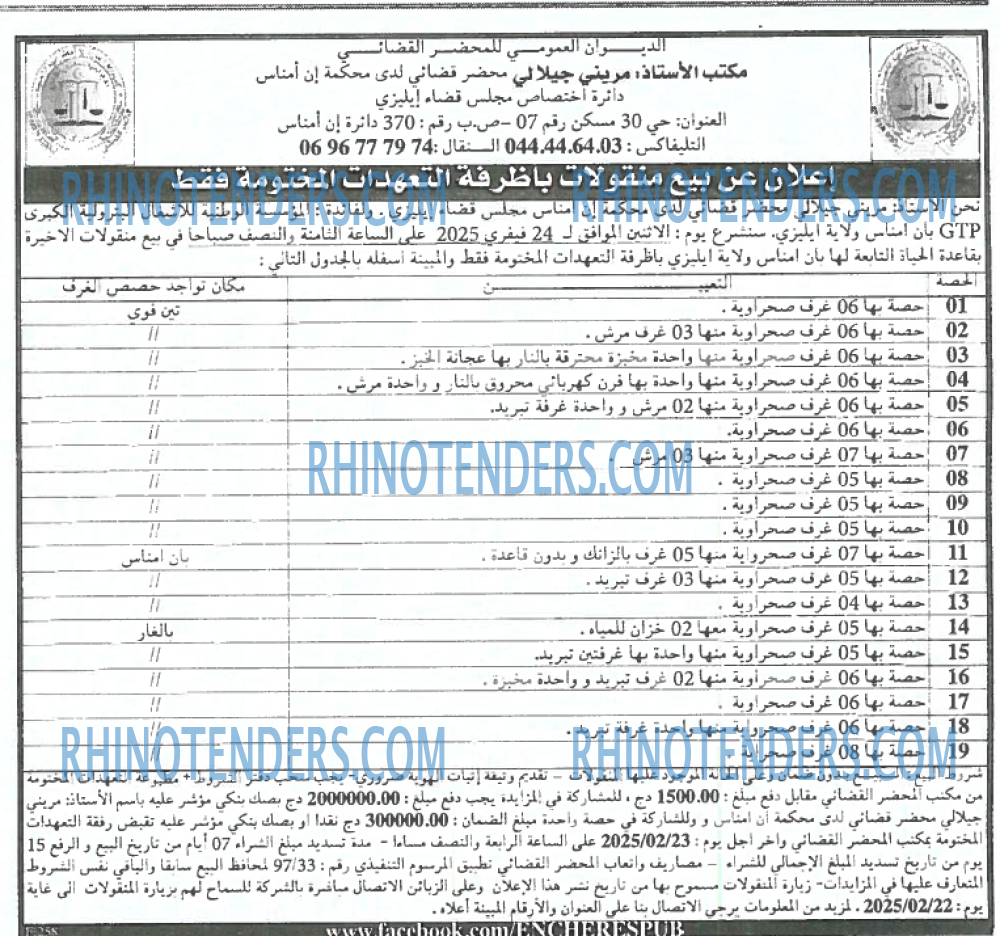 الديـــوان العمومـي للمحضـر القضائـــي
مكتب الأستاذ: مريني جيلالي محضر قضائي لدى محكمة إن أمناس
دائرة اختصاص مجلس قضاء إيليزي
العنوان: حي 30 مسكن رقم 07 –ص.ب رقم : 370 دائرة إن أمناس
التليفاكس : 044.44.64.03 الـــنقال :74 79 77 96 06
إعلان عن بيع منقولات باظرفة التعهدات المختومة فقط
RHINOTENDERS.COM RHINOTENDERS.COM
نحن الاستاذ: مريني جيلالي محضر قضائي لدى محكمة إن امناس مجلس قضاء إيليزي . ولفائدة : المؤسسة الوطنية للاشغال البترولية الكبرى
GTP بان امناس ولاية ايليزي. سنشرع يوم : الاثنين الموافق لـ 24 فيفري 2025 على الساعة الثامنة والنصف صباحا في بيع منقولات الاخيرة
بقاعدة الحياة التابعة لها بان امناس ولاية ايليزي باظرفة التعهدات المختومة فقط والمبينة أسفله بالجدول التالي :
الحصة التعييـــــــــــن مكان تواجد حصص الغرف
01 حصة بها 06 غرف صحراوية . تين فوي
02 حصة بها 06 غرف صحراوية منها 03 غرف مرش . //
03 حصة بها 06 غرف صحراوية منها واحدة مخبزة محترقة بالنار بها عجانة الخبز . //
04 حصة بها 06 غرف صحراوية منها واحدة بها فرن كهربائي محروق بالنار و واحدة مرش . //
05 حصة بها 06 غرف صحراوية منها 02 مرش و واحدة غرفة تبريد. //
06 حصة بها 06 غرف صحراوية. //
07 حصة بها 07 غرف صحراوية منها 03 مرش . //
RHINOTENDERS.COM
08 حصة بها 05 غرف صحراوية . //
09 حصة بها 05 غرف صحراوية . //
10 حصة بها 05 غرف صحراوية . //
11 حصة بها 07 غرف صحرواية منها 05 غرف بالزانك و بدون قاعدة . بان امناس
12 حصة بها 05 غرف صحراوية منها 03 غرف تبريد . //
13 حصة بها 04 غرف صحراوية . //
14 حصة بها 05 غرف صحراوية معها 02 خزان للمياه . بالغار
15 حصة بها 05 غرف صحراوية منها واحدة بها غرفتين تبريد. //
16 حصة بها 06 غرف صحراوية منها 02 غرف تبريد و واحدة مخبزة . //
17 حصة بها 06 غرف صحراوية . //
18 حصة بها 06 غرف صحرواية منها واحدة غرفة تبريد . //
19 حصة بها 08 غرف صحراوية //
RHINOTENDERS.COM RHINOTENDERS.COM
شروط البيع : البيع بدون ضمان وعلى الحالة الموجود عليها المنقولات – تقديم وثيقة إثبات الهوية ضروري- يجب سحب دفتر الشروط + مطبوعة التعهدات المختومة
من مكتب المحضر القضائي مقابل دفع مبلغ : 1500.00 دج ، للمشاركة في المزايدة يجب دفع مبلغ : 2000000.00 دج بصك بنكي مؤشر عليه باسم الأستاذ: مريني
جيلالي محضر قضائي لدى محكمة ان امناس و وللشاركة في حصة واحدة مبلغ الضمان : 300000.00 دج نقدا او بصك بنكي مؤشر عليه تقبض رفقة التعهدات
المختومة بمكتب المحضر القضائي واخر اجل يوم : 2025/02/23 على الساعة الرابعة والنصف مساءا - مدة تسديد مبلغ الشراء 07 أيام من تاريخ البيع و الرفع 15
يوم من تاريخ تسديد المبلغ الإجمالي للشراء – مصاريف واتعاب المحضر القضائي تطبيق المرسوم التنفيذي رقم : 97/33 لمحافظ البيع سابقا والباقي نفس الشروط
المتعارف عليها في المزايدات- زيارة المنقولات مسموح بها من تاريخ نشر هذا الإعلان وعلى الزبائن الاتصال مباشرة بالشركة للسماح لهم بزيارة المنقولات الى غاية
يوم : 2025/02/22 . لمزيد من المعلومات يرجى الاتصال بنا على العنوان والأرقام المبينة أعلاه .
www.facebook.com/ENCHERESPUB
F:258